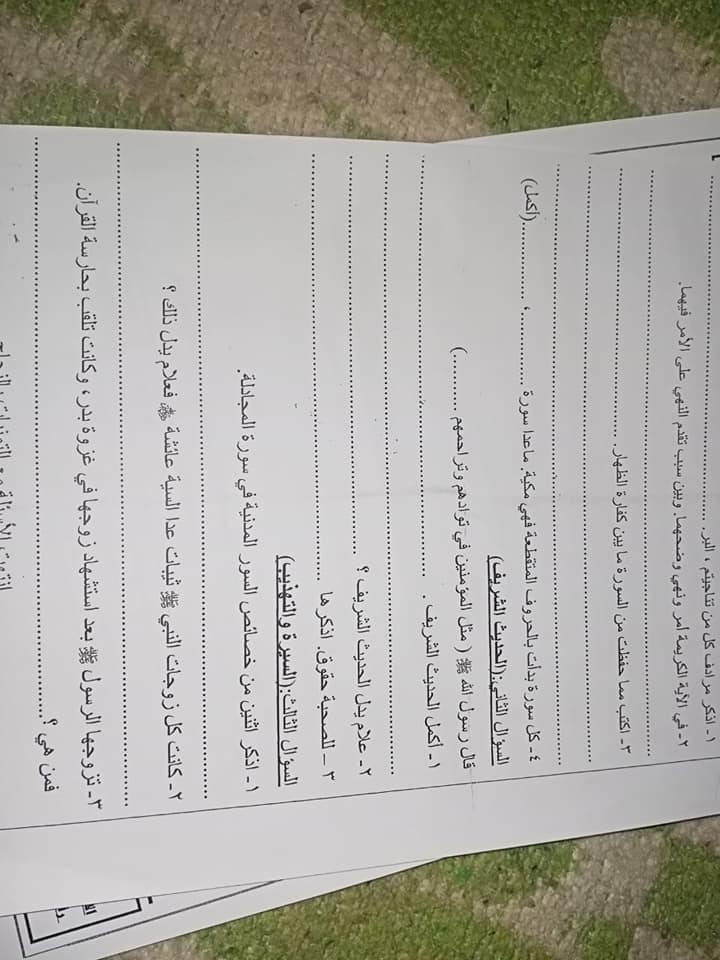 ١- اذكر مرادف كل من تناجيتم ، البر. ..............................
٢- في الآية الكريمة أمر ونهي وضحهما. وبين سبب تقدم النهي على الأمر فيهما.
..............................
٣- اكتب مما حفظت من السورة ما يبين كفارة الظهار. ..............................
..............................
..............................
٤- كل سورة بدأت بالحروف المتقطعة فهي مكية. ماعدا سورة ............ ، ............(أكمل)
السؤال الثاني:(الحديث الشريف)
قال رسول الله ﷺ ( مثل المؤمنين في توادهم وتراحمهم ........)
١- أكمل الحديث الشريف . ..............................
..............................
٢- علام يدل الحديث الشريف ؟ ..............................
٣ – للصحبة حقوق. اذكرها ..............................
السؤال الثالث:(السيرة والتهذيب)
١- اذكر اثنين من خصائص السور المدنية في سورة المجادلة.
..............................
٢- كانت كل زوجات النبي ﷺ ثيبات عدا السية عائشة ﷺ فعلام يدل ذلك ؟
..............................
٣- تزوجها الرسول ﷺ بعد استشهاد زوجها في غزوة بدر ، وكانت تلقب بحارسة القرآن.
فمن هي ؟ ..............................
انتهت الأسئلة مع